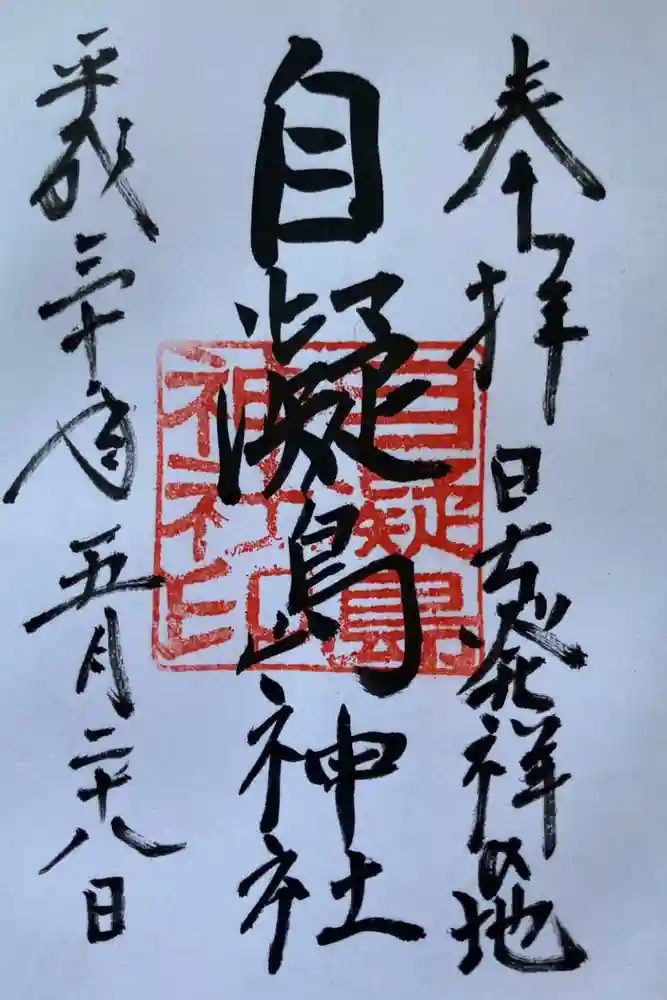 奉拝 日本発祥の地
自凝島神社
平成三十年五月二十八日
自凝島
神社印